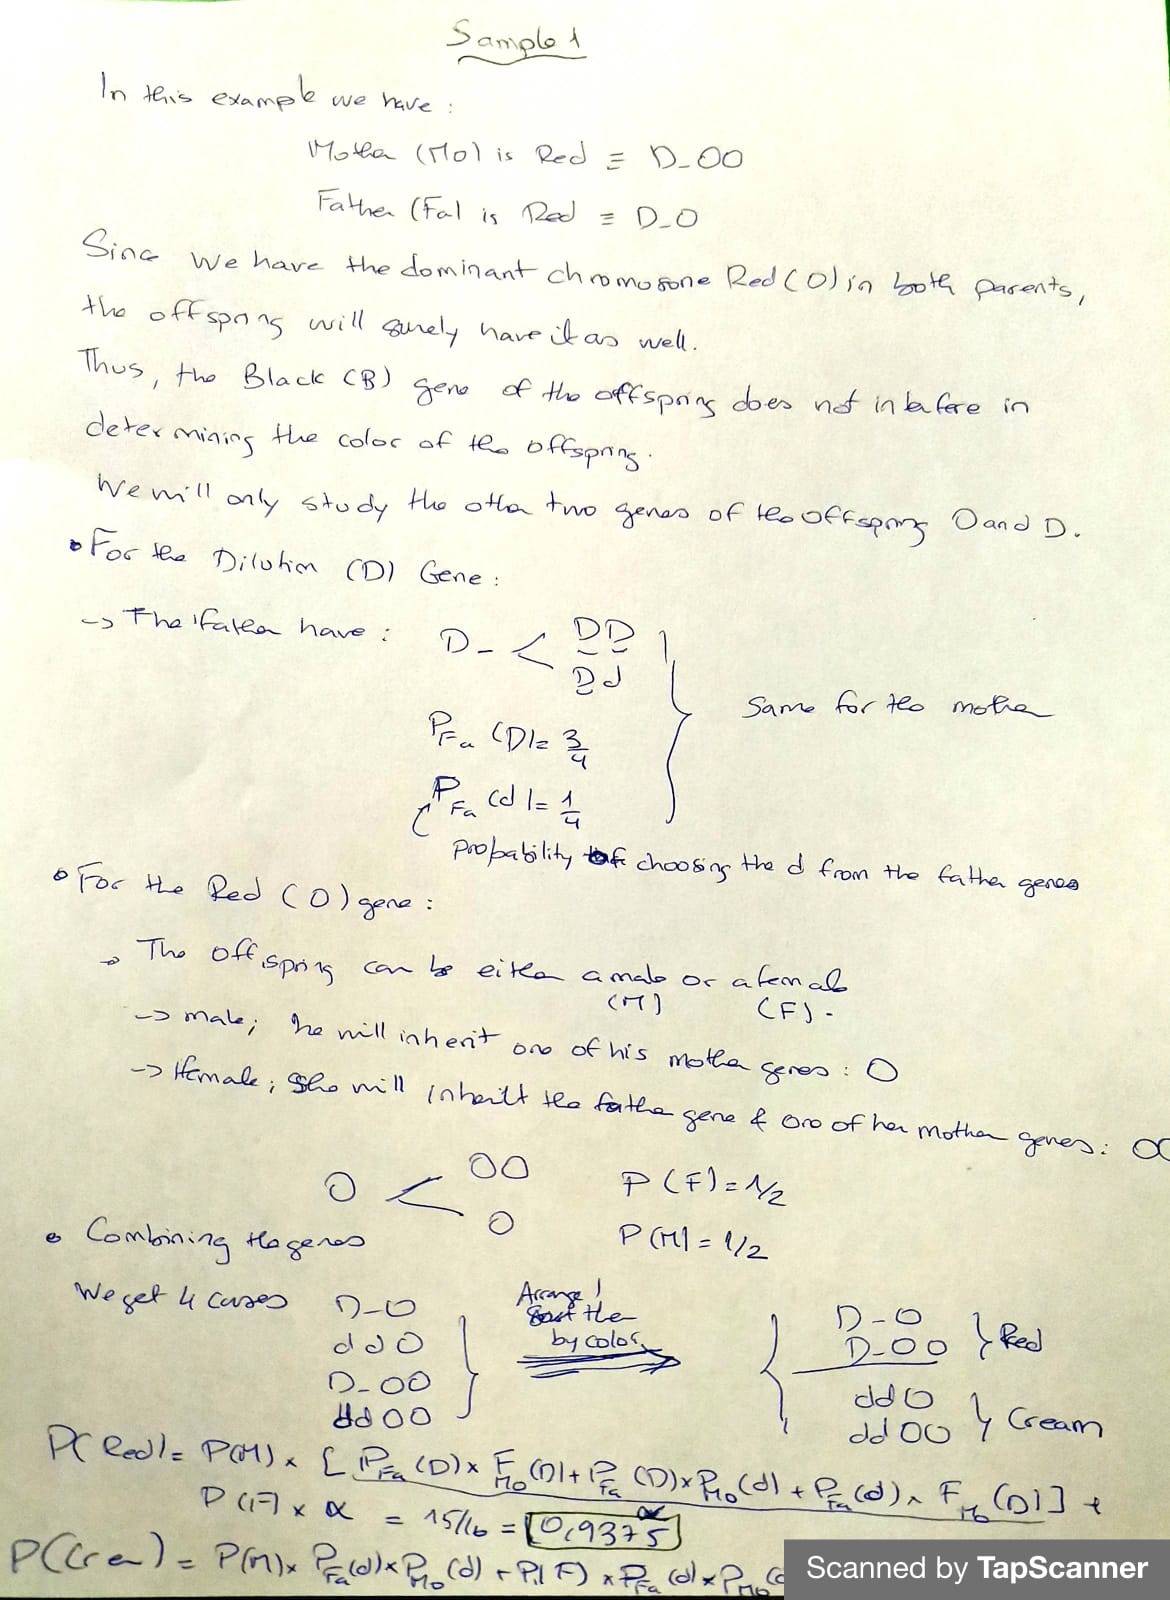 Sample 1
In this example we have :
Mother (Mo) is Red ≡ D_OO
Father (Fa) is Red ≡ D_O
Since we have the dominant chromosone Red (O) in both parents,
the offspring will surely have it as well.
Thus, the Black (B) gene of the offspring does not interfere in
determining the color of the offspring.
We will only study the other two genes of the offspring O and D.
• For the Dilution (D) Gene :
-> The father have : D_ < DD
Dd
Same for the mother
P_Fa (D) = 3/4
P_Fa (d) = 1/4
probability of choosing the d from the father genes
• For the Red (O) gene :
-> The offspring can be either a male or a female
(M) (F).
-> male; he will inherit one of his mother genes : O
-> female; she will inherit the father gene & one of her mother genes : OO
O < OO
O
P(F) = 1/2
P(M) = 1/2
• Combining the genes
We get 4 cases D_O
ddO
D_OO
ddOO
Arrange /
the
by color
D_O
D_OO } Red
ddO
ddOO } Cream
P(Red) = P(M) x [P_Fa (D) x P_Mo (D) + P_Fa (D) x P_Mo (d) + P_Fa (d) x P_Mo (D)] +
α
P(F) x α = 15/16 = 0,9375
P(Cream) = P(M) x P_Fa (d) x P_Mo (d) + P(F) x P_Fa (d) x P_Mo (d
Scanned by TapScanner